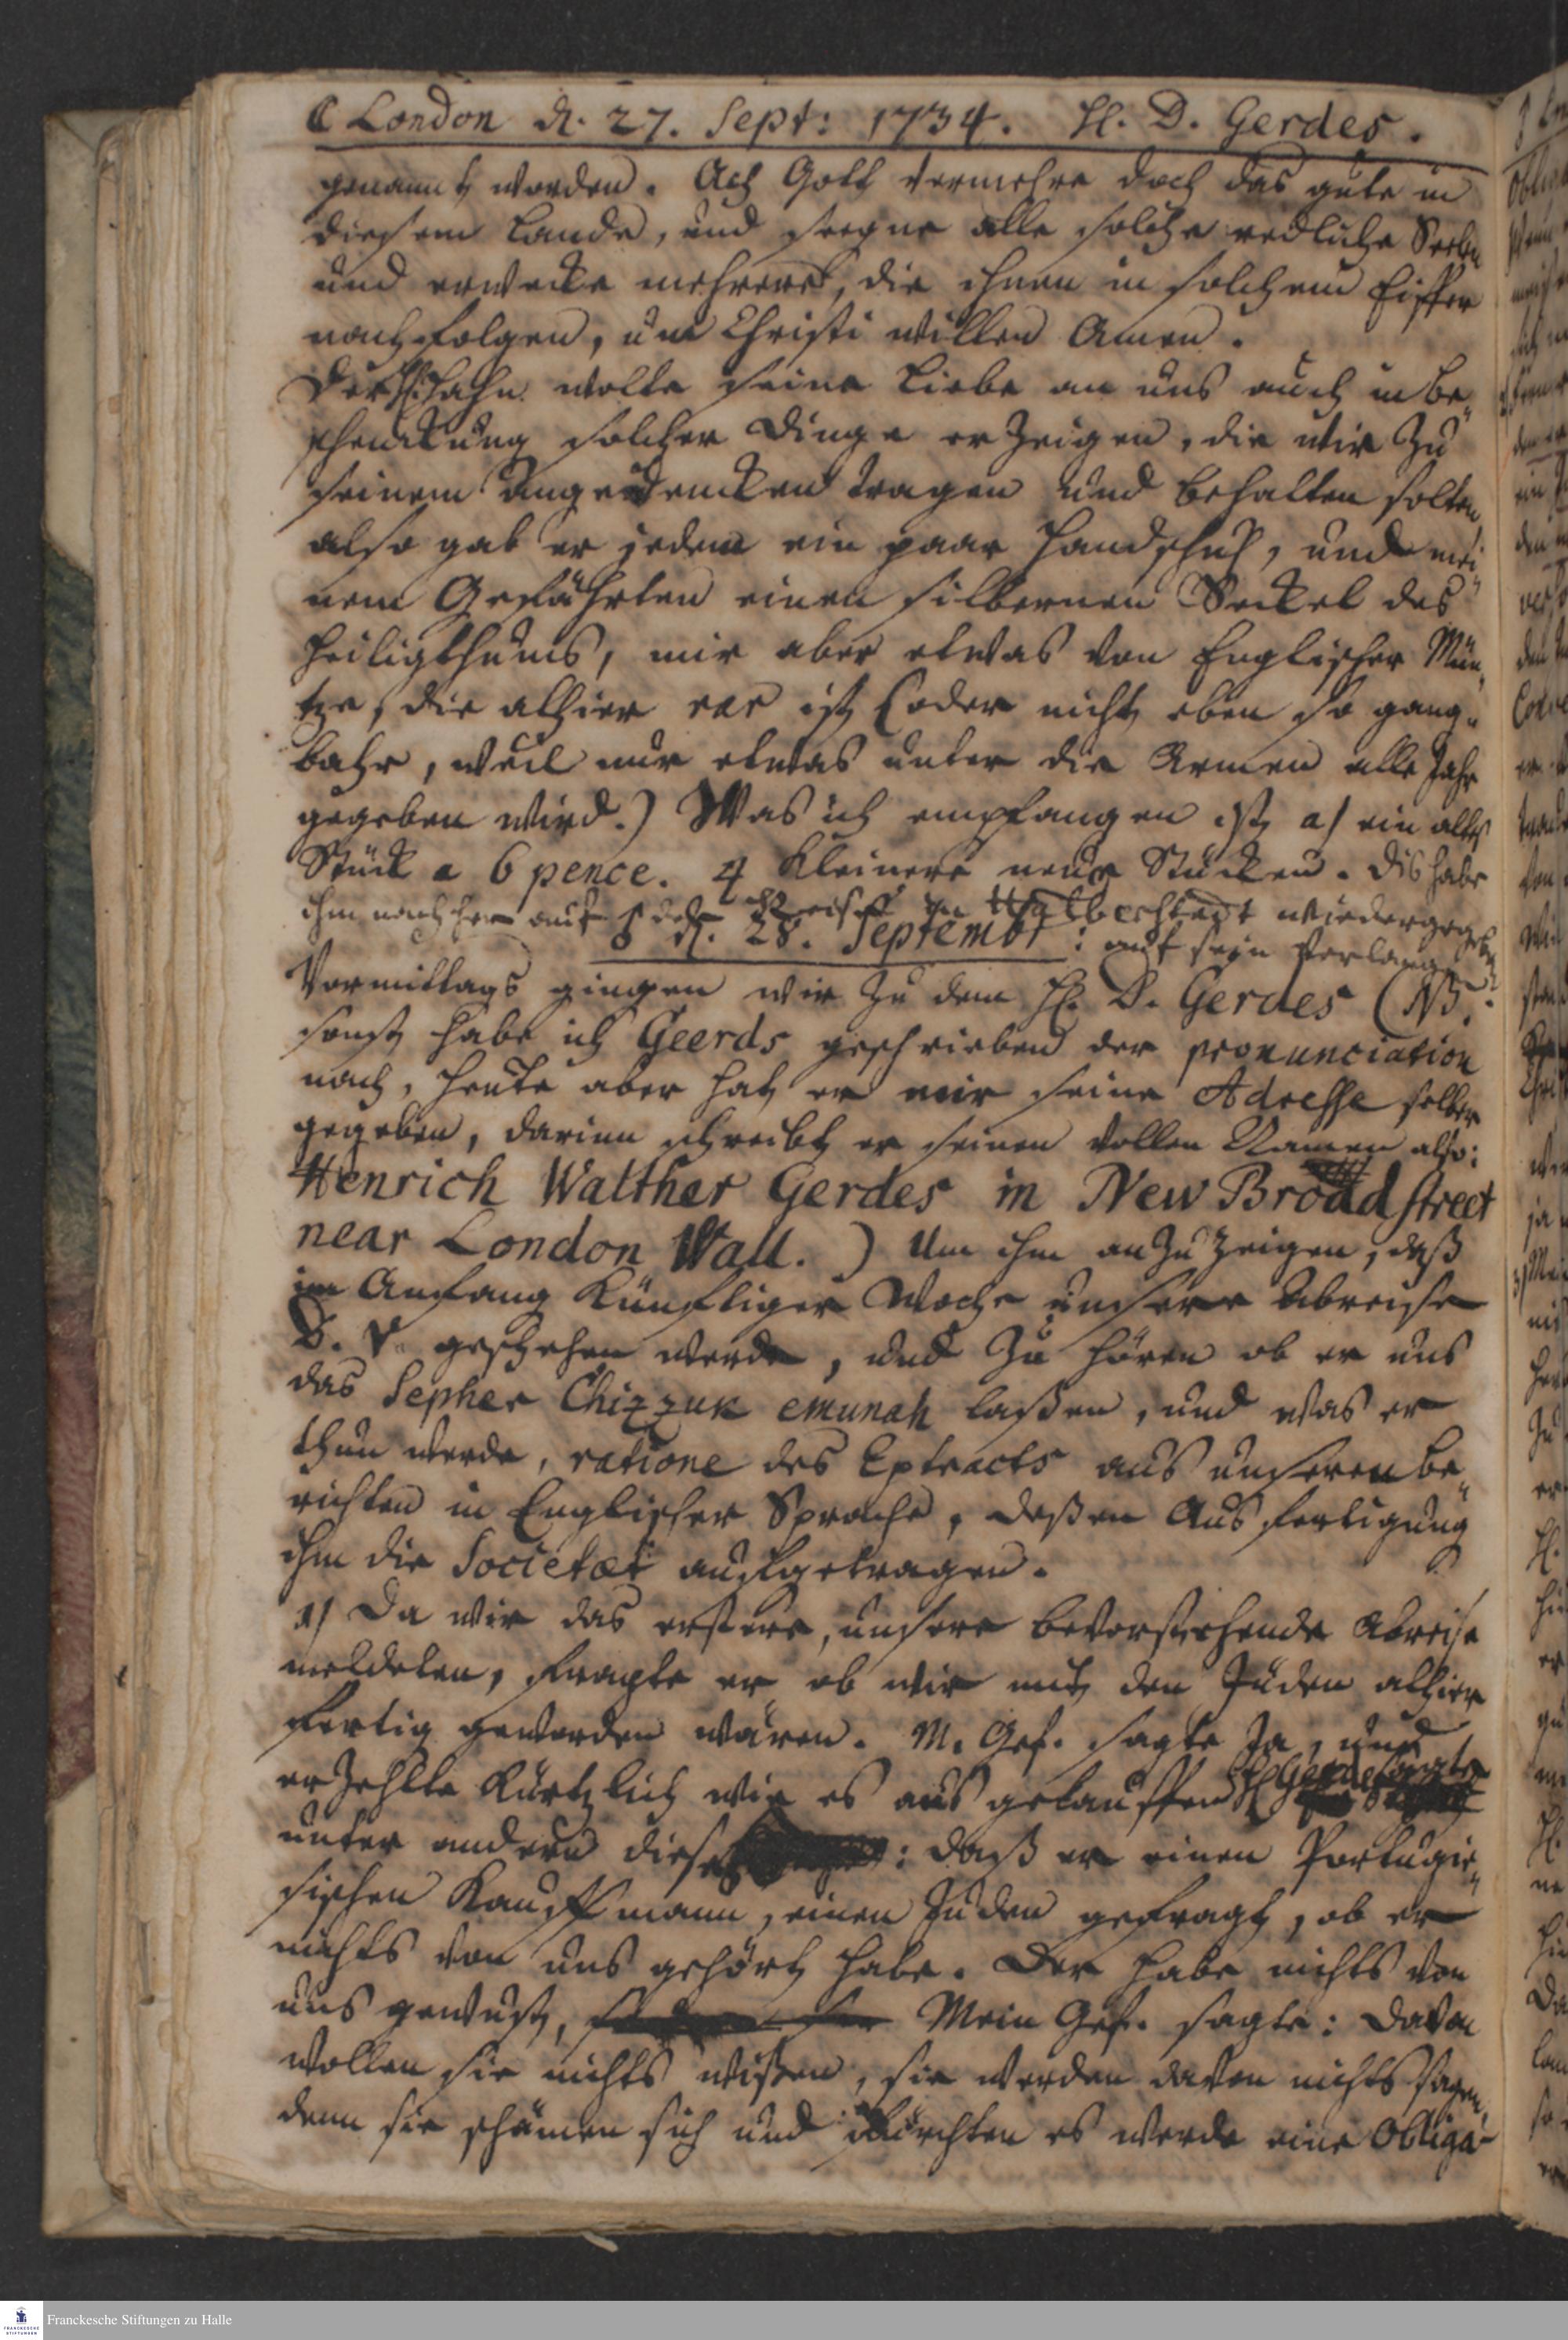 ☾ London d. 27. Sept: 1734. H. D. Gerdes.
genannt worden. Ach Gott vermehre doch das gute in
diesem Lande, und seegne alle solche redliche Seelen
und erwecke mehrere, die ihnen in solchem Eiffer
nachfolgen, um Christi willen Amen.
Der H. Hahn wolte seine Liebe an uns auch in Be„
schenckung solcher Dinge erzeigen, die wir zu
seinem angedencken tragen und behalten solten,
also gab er jedem ein paar Handschuh, und mei„
nem Gefährten einen silbernen Seckel des
Heiligthums, mir aber etwas von Englischer Mün„
tze, die alhier rar ist (oder nicht eben so gang„
bahr, weil nur etwas unter die Armen alle Jahr
gegeben wird.) Was ich empfangen ist a) ein altes
Stück a 6 pence. 4 kleinere neue Stücken. Dis habe
ihm nachher auf der Reise in Halberstadt wiedergegeben
d. 28. Septembr: auf sein Verlangen.
Vormittags gingen wir zu dem H. D. Gerdes (NB.
sonst habe ich Geerds geschrieben der pronunciation
nach, heute aber hat er mir seine Adresse selber
gegeben, darinn schreibt er seinen vollen Namen also:
Henrich Walther Gerdes in New Broad street
near London Wall.) Um ihm anzuzeigen, daß
im Anfang künfftiger Woche unsere Abreise
D. V. geschehen werde, und zu hören ob er uns
das Sepher Chizzuk emunah laßen, und was er
thun werde, ratione des Extracts aus unseren Be„
richten in Englischer Sprache, deßen Ausfertigung
ihm die Societæt aufgetragen.
1) Da wir das erstere, unsere bevorstehende Abreise
meldeten, fragte er ob wir mit den Juden alhier
fertig geworden wären. M. Gef. sagte Ja, und
erzehlte kürtzlich wie es aus gelauffen H. Gerdes sagte
unter andern dieses: daß er einen Portugie„
sischen Kauffmann, einen Juden gefragt, ob er
nichts von uns gehört habe. Der habe nichts von
uns gewust, Mein Gef. sagte: Davon
wollen sie nichts wißen, sie werden davon nichts sagen,
denn sie schämen sich und fürchten es werde eine Obliga-
Franckesche Stiftungen zu Halle